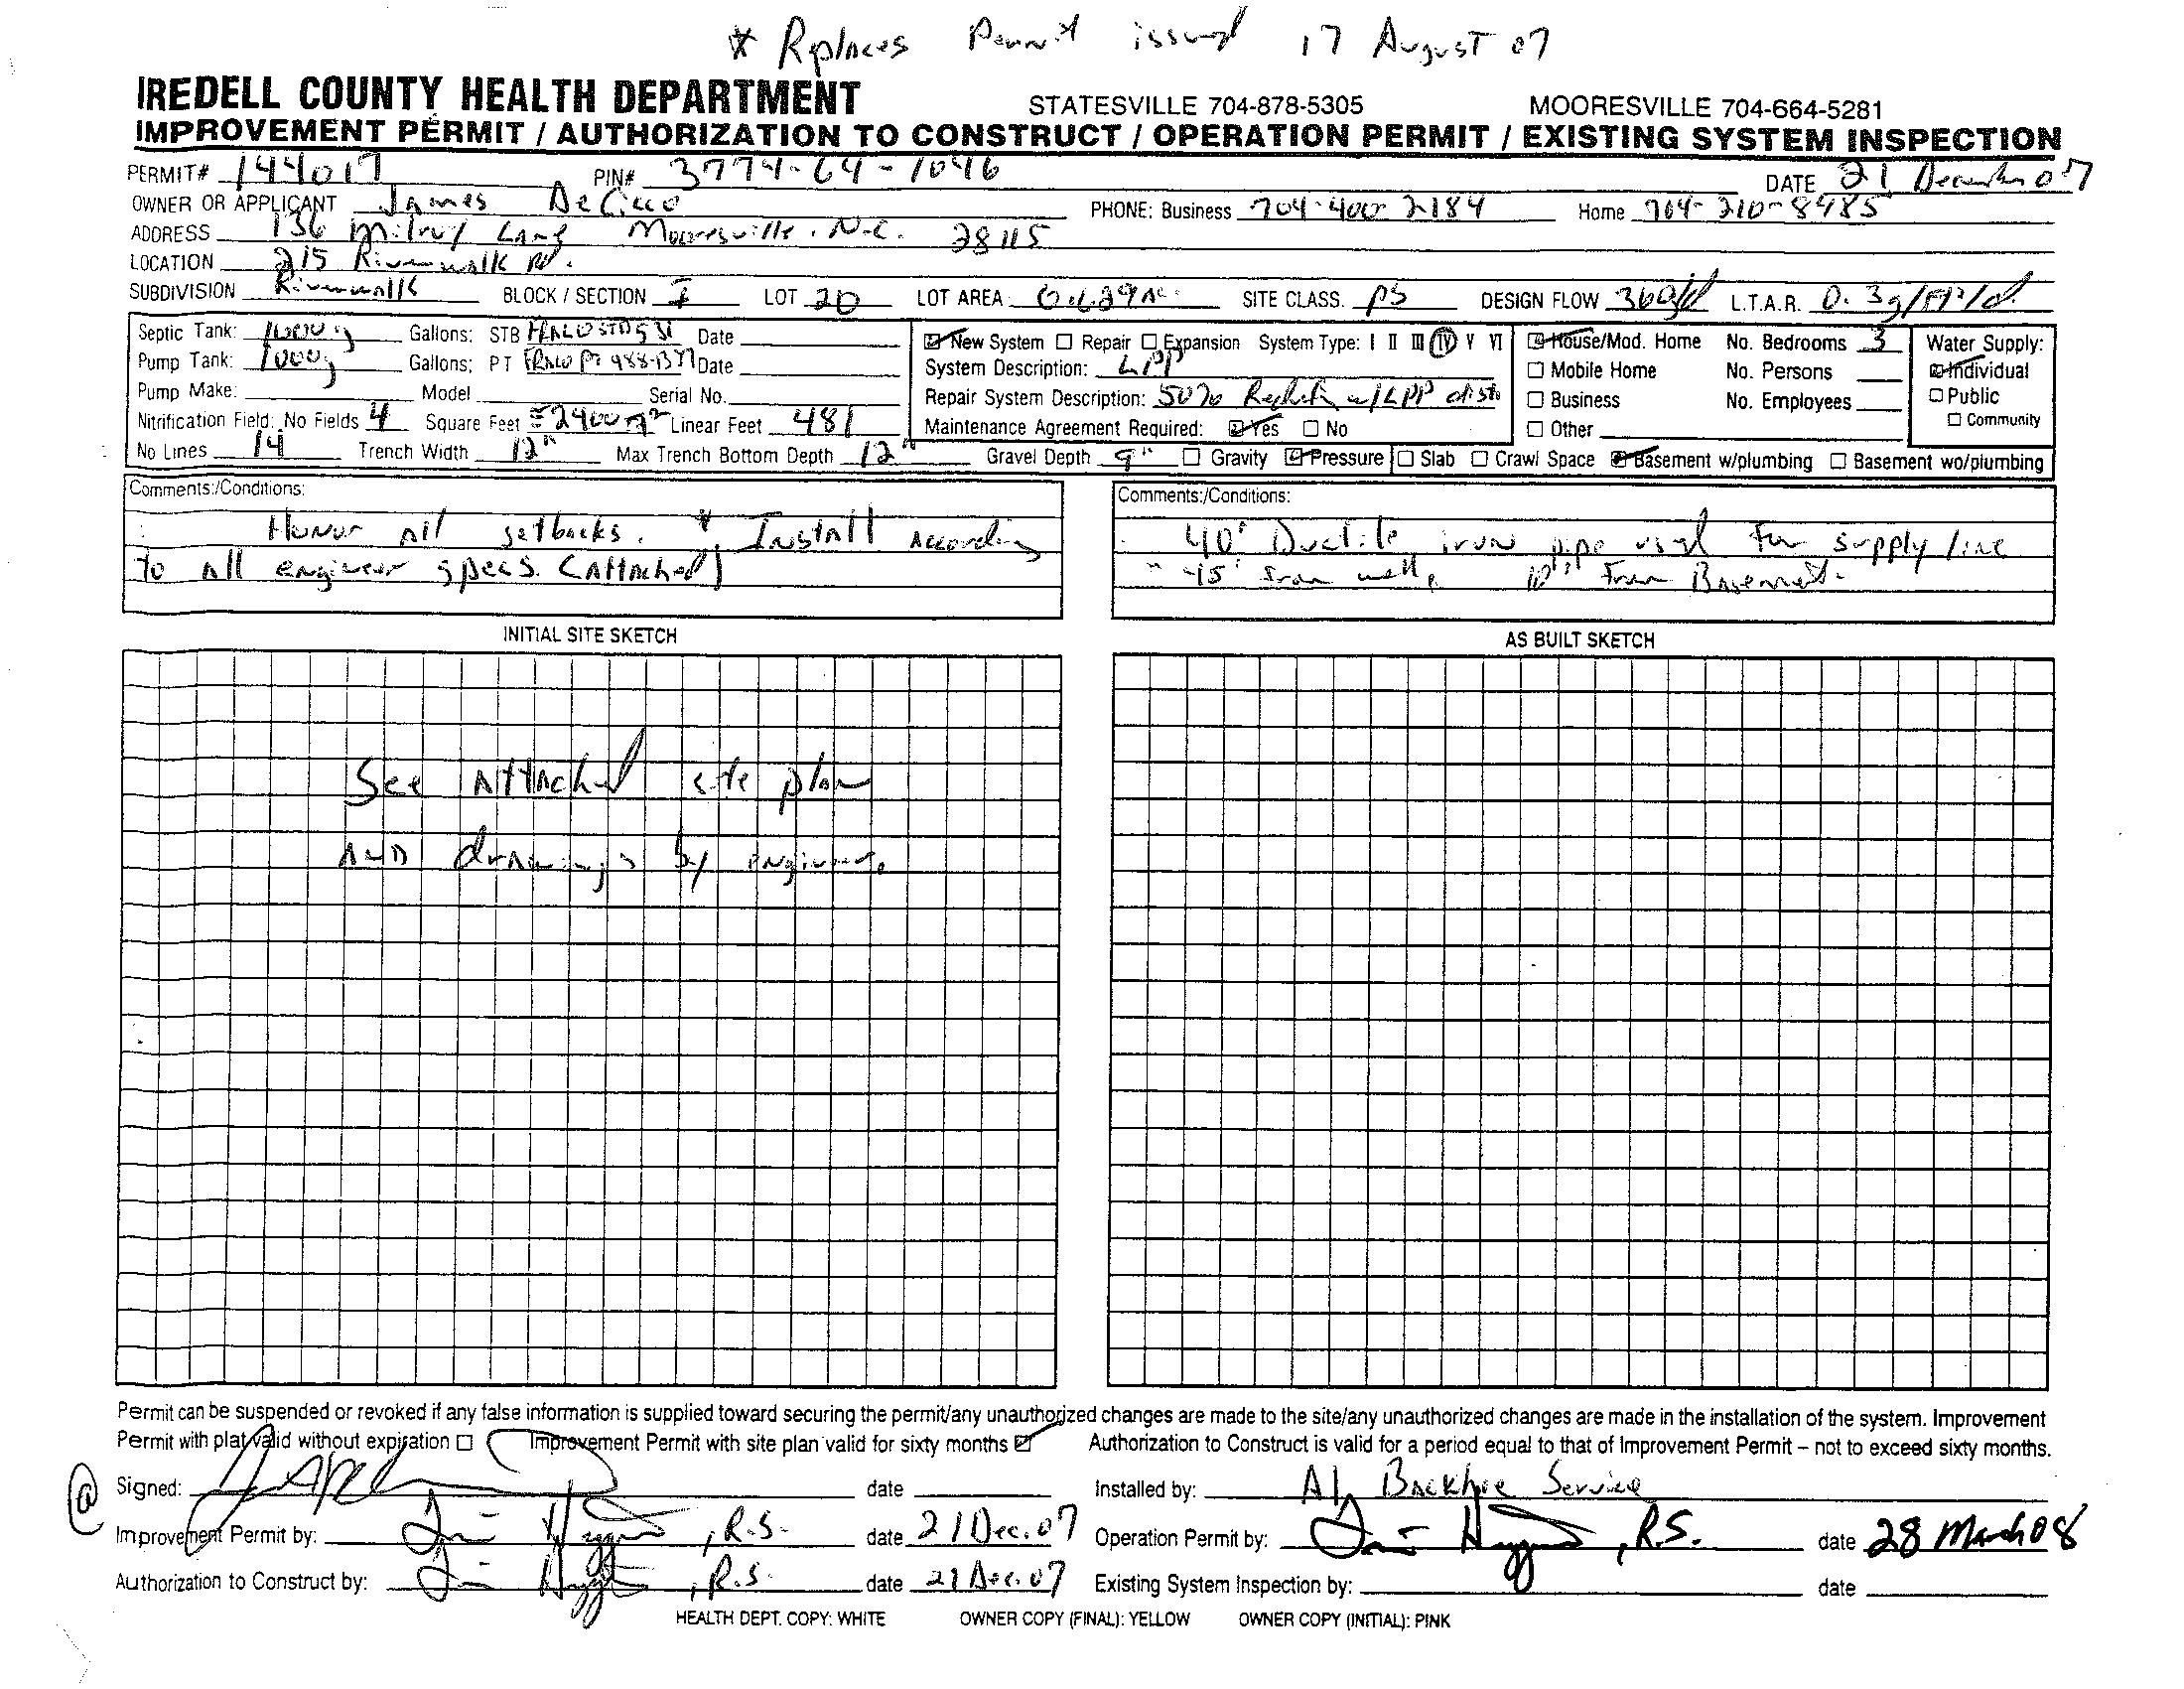 * Replaces Permit issued 17 August 07
IREDELL COUNTY HEALTH DEPARTMENT STATESVILLE 704-878-5305 MOORESVILLE 704-664-5281
IMPROVEMENT PERMIT / AUTHORIZATION TO CONSTRUCT / OPERATION PERMIT / EXISTING SYSTEM INSPECTION
PERMIT# 144017 PIN# 3774-64-1046 DATE 21 December 07
OWNER OR APPLICANT James DeCicco PHONE: Business 704-400-2184 Home 704-210-8485
ADDRESS 136 Milroy Lane Mooresville, N.C. 28115
LOCATION 215 Riverwalk Rd.
SUBDIVISION Riverwalk BLOCK / SECTION I LOT 20 LOT AREA SITE CLASS. PS DESIGN FLOW 360g/d L.T.A.R. 0.3g/ft²/d.
Septic Tank: 1000g Gallons; STB Date
Pump Tank: 1000g Gallons; PT Date
Pump Make: Model Serial No.
Nitrification Field: No Fields 4 Square Feet ≈2400ft² Linear Feet 481
No Lines 14 Trench Width 12" Max Trench Bottom Depth 12" Gravel Depth 9" ☐ Gravity ☑ Pressure
☑ New System ☐ Repair ☐ Expansion System Type: I II III IV V VI
System Description: LPP
Repair System Description: 50% Reduction w/LPP dist.
Maintenance Agreement Required: ☑ Yes ☐ No
☑ House/Mod. Home No. Bedrooms 3
☐ Mobile Home No. Persons
☐ Business No. Employees
☐ Other
☐ Slab ☐ Crawl Space ☑ Basement w/plumbing ☐ Basement wo/plumbing
Water Supply:
☑ Individual
☐ Public
☐ Community
Comments:/Conditions:
Honor all setbacks. * Install According
to all engineer specs. (Attached)
Comments:/Conditions:
40' Ductile iron pipe used for supply line
15' from well, 10' from Basement.
INITIAL SITE SKETCH
See Attached site plan
AND drawings by engineer.
AS BUILT SKETCH
Permit can be suspended or revoked if any false information is supplied toward securing the permit/any unauthorized changes are made to the site/any unauthorized changes are made in the installation of the system. Improvement
Permit with plat valid without expiration ☐ Improvement Permit with site plan valid for sixty months ☑ Authorization to Construct is valid for a period equal to that of Improvement Permit – not to exceed sixty months.
Signed: date Installed by: A1 Backhoe Service
Improvement Permit by: , R.S. date 21 Dec. 07 Operation Permit by: , R.S. date 28 March 08
Authorization to Construct by: , R.S. date 21 Dec. 07 Existing System Inspection by: date
HEALTH DEPT. COPY: WHITE OWNER COPY (FINAL): YELLOW OWNER COPY (INITIAL): PINK